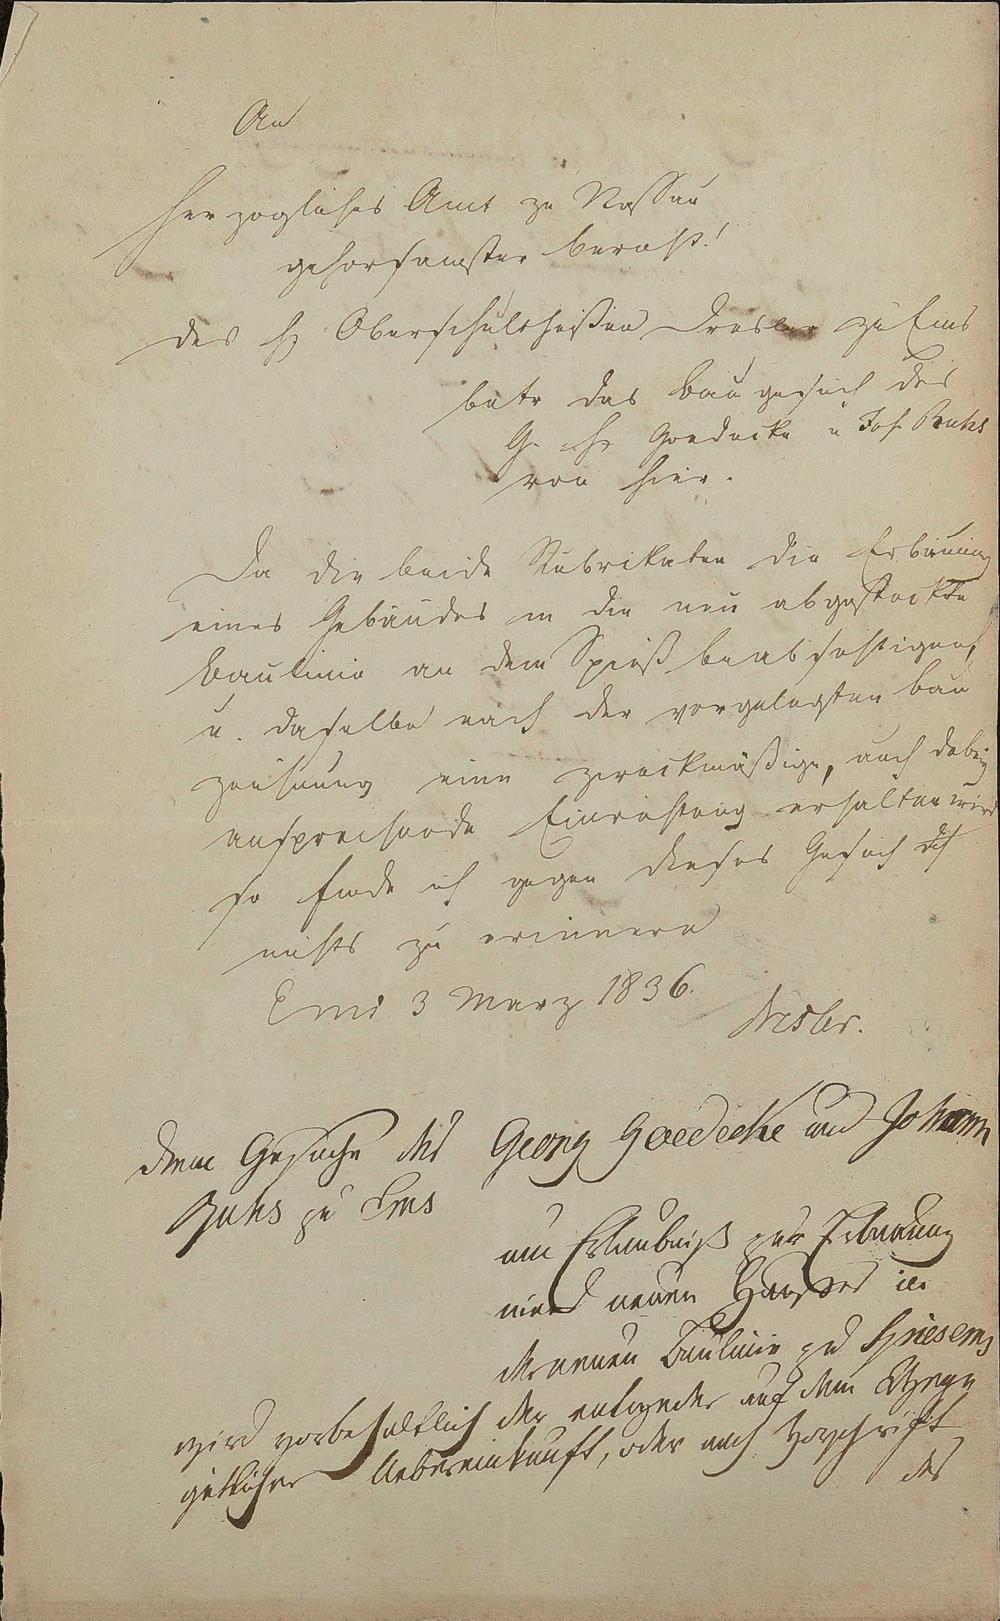 An
Herzogliches Amt zu Nassau
gehorsamster Bericht!
des H Oberschultheißen Dresler zu Ems
betr das Baugesuch des
G. H. Goedecke u Joh. Ruhs
von hier.
Da die beide Rubrikaten die Erbauung
eines Gebäudes in die neu abgesteckte
Baulinie an dem Spieß beabsichtigen,
u. dasselbe nach der vorgelegten Bau
zeichnung eine zweckmäßige, auch dabey
ansprechende Einrichtung erhalten wird
so finde ich gegen dieses Gesuch
nichts zu erinnern
Ems 3 März 1836.
Dresler.
Dem Gesuche des Georg Goedecke und Johann
Ruhs zu Ems
um Erlaubniß zur Erbauung
eines neuen Hauses in
der neuen Baulinie zu Spiesems
wird vorbehaltlich der entweder auf dem Wege
gütlicher Uebereinkunft, oder nach Vorschrift
des